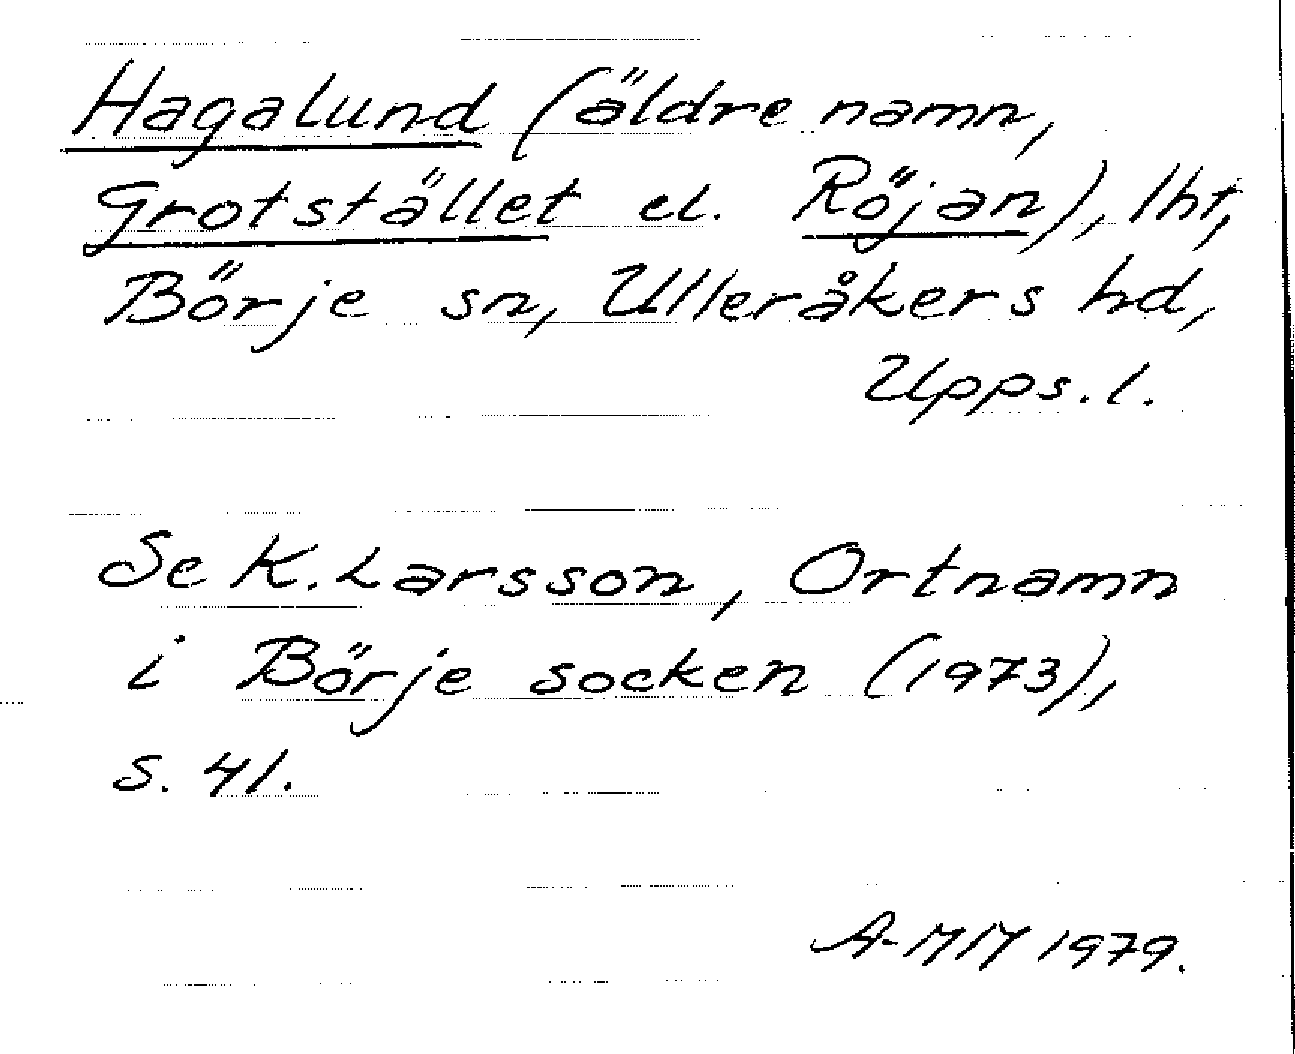 Hagalund (äldre namn,
Grotstället el. Röjan), lht,
Börje sn, Ulleråkers hd,
Upps. l.
Se K. Larsson, Ortnamn
i Börje socken (1973),
s. 41.
A-MM 1979.